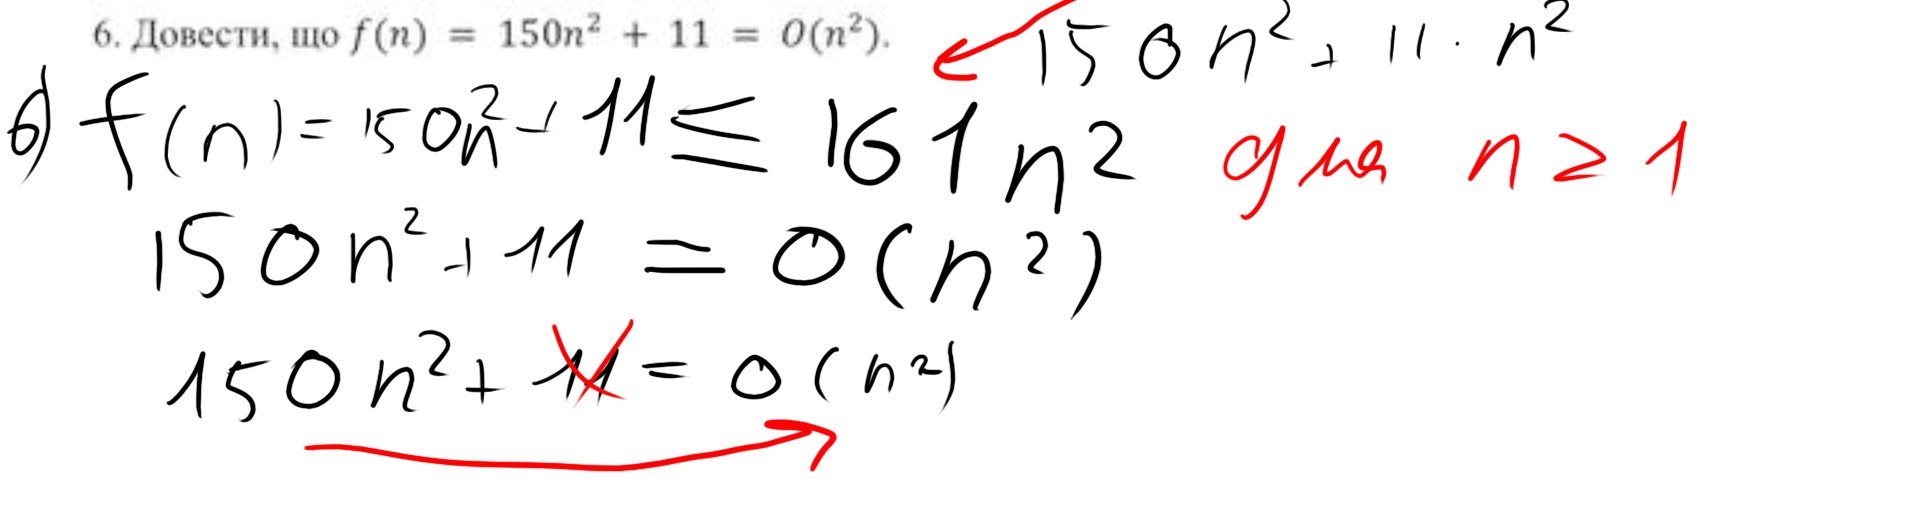 6. Довести, що f(n) = 150n² + 11 = O(n²).
150n² + 11 · n²
6) f(n) = 150n² + 11 ≤ 161n² для n ≥ 1
150n² + 11 = O(n²)
150n² + 11 = O(n²)